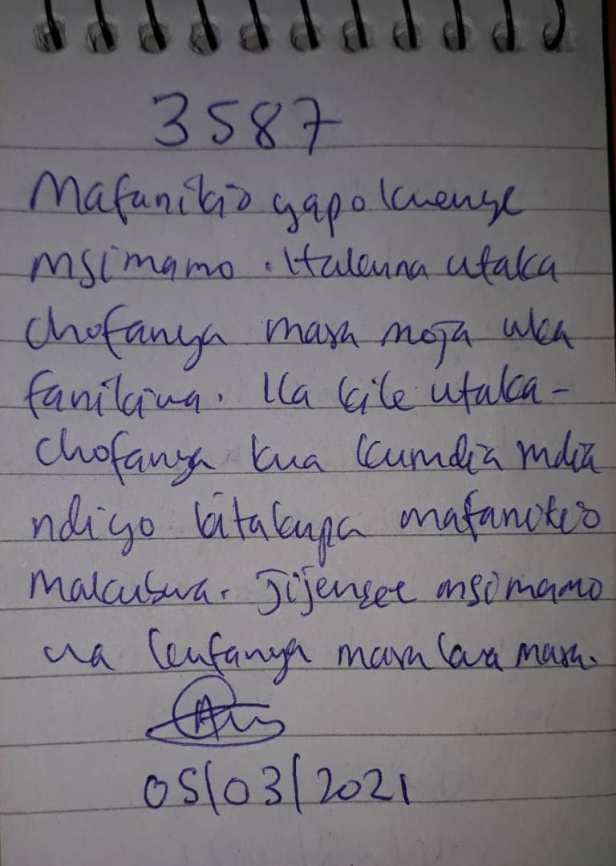 3587
Mafanikio yapo kwenye
msimamo. Hakuna utaka
chofanya mara moja uka
fanikiwa. Ila kile utaka-
chofanya kwa kumdia mdia
ndiyo kitakupa mafanikio
makubwa. Jijengee msimamo
wa kufanya mara kwa mara.
05/03/2021